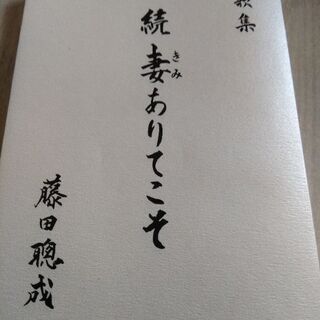 歌集
続 妻ありてこそ
きみ
藤田聰成